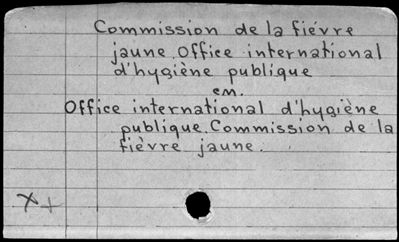 Commission de la fiévre
jaune. Office international
d'hygiène publique
em.
Office international d'hygiène
publique. Commission de la
fièvre jaune.
X+